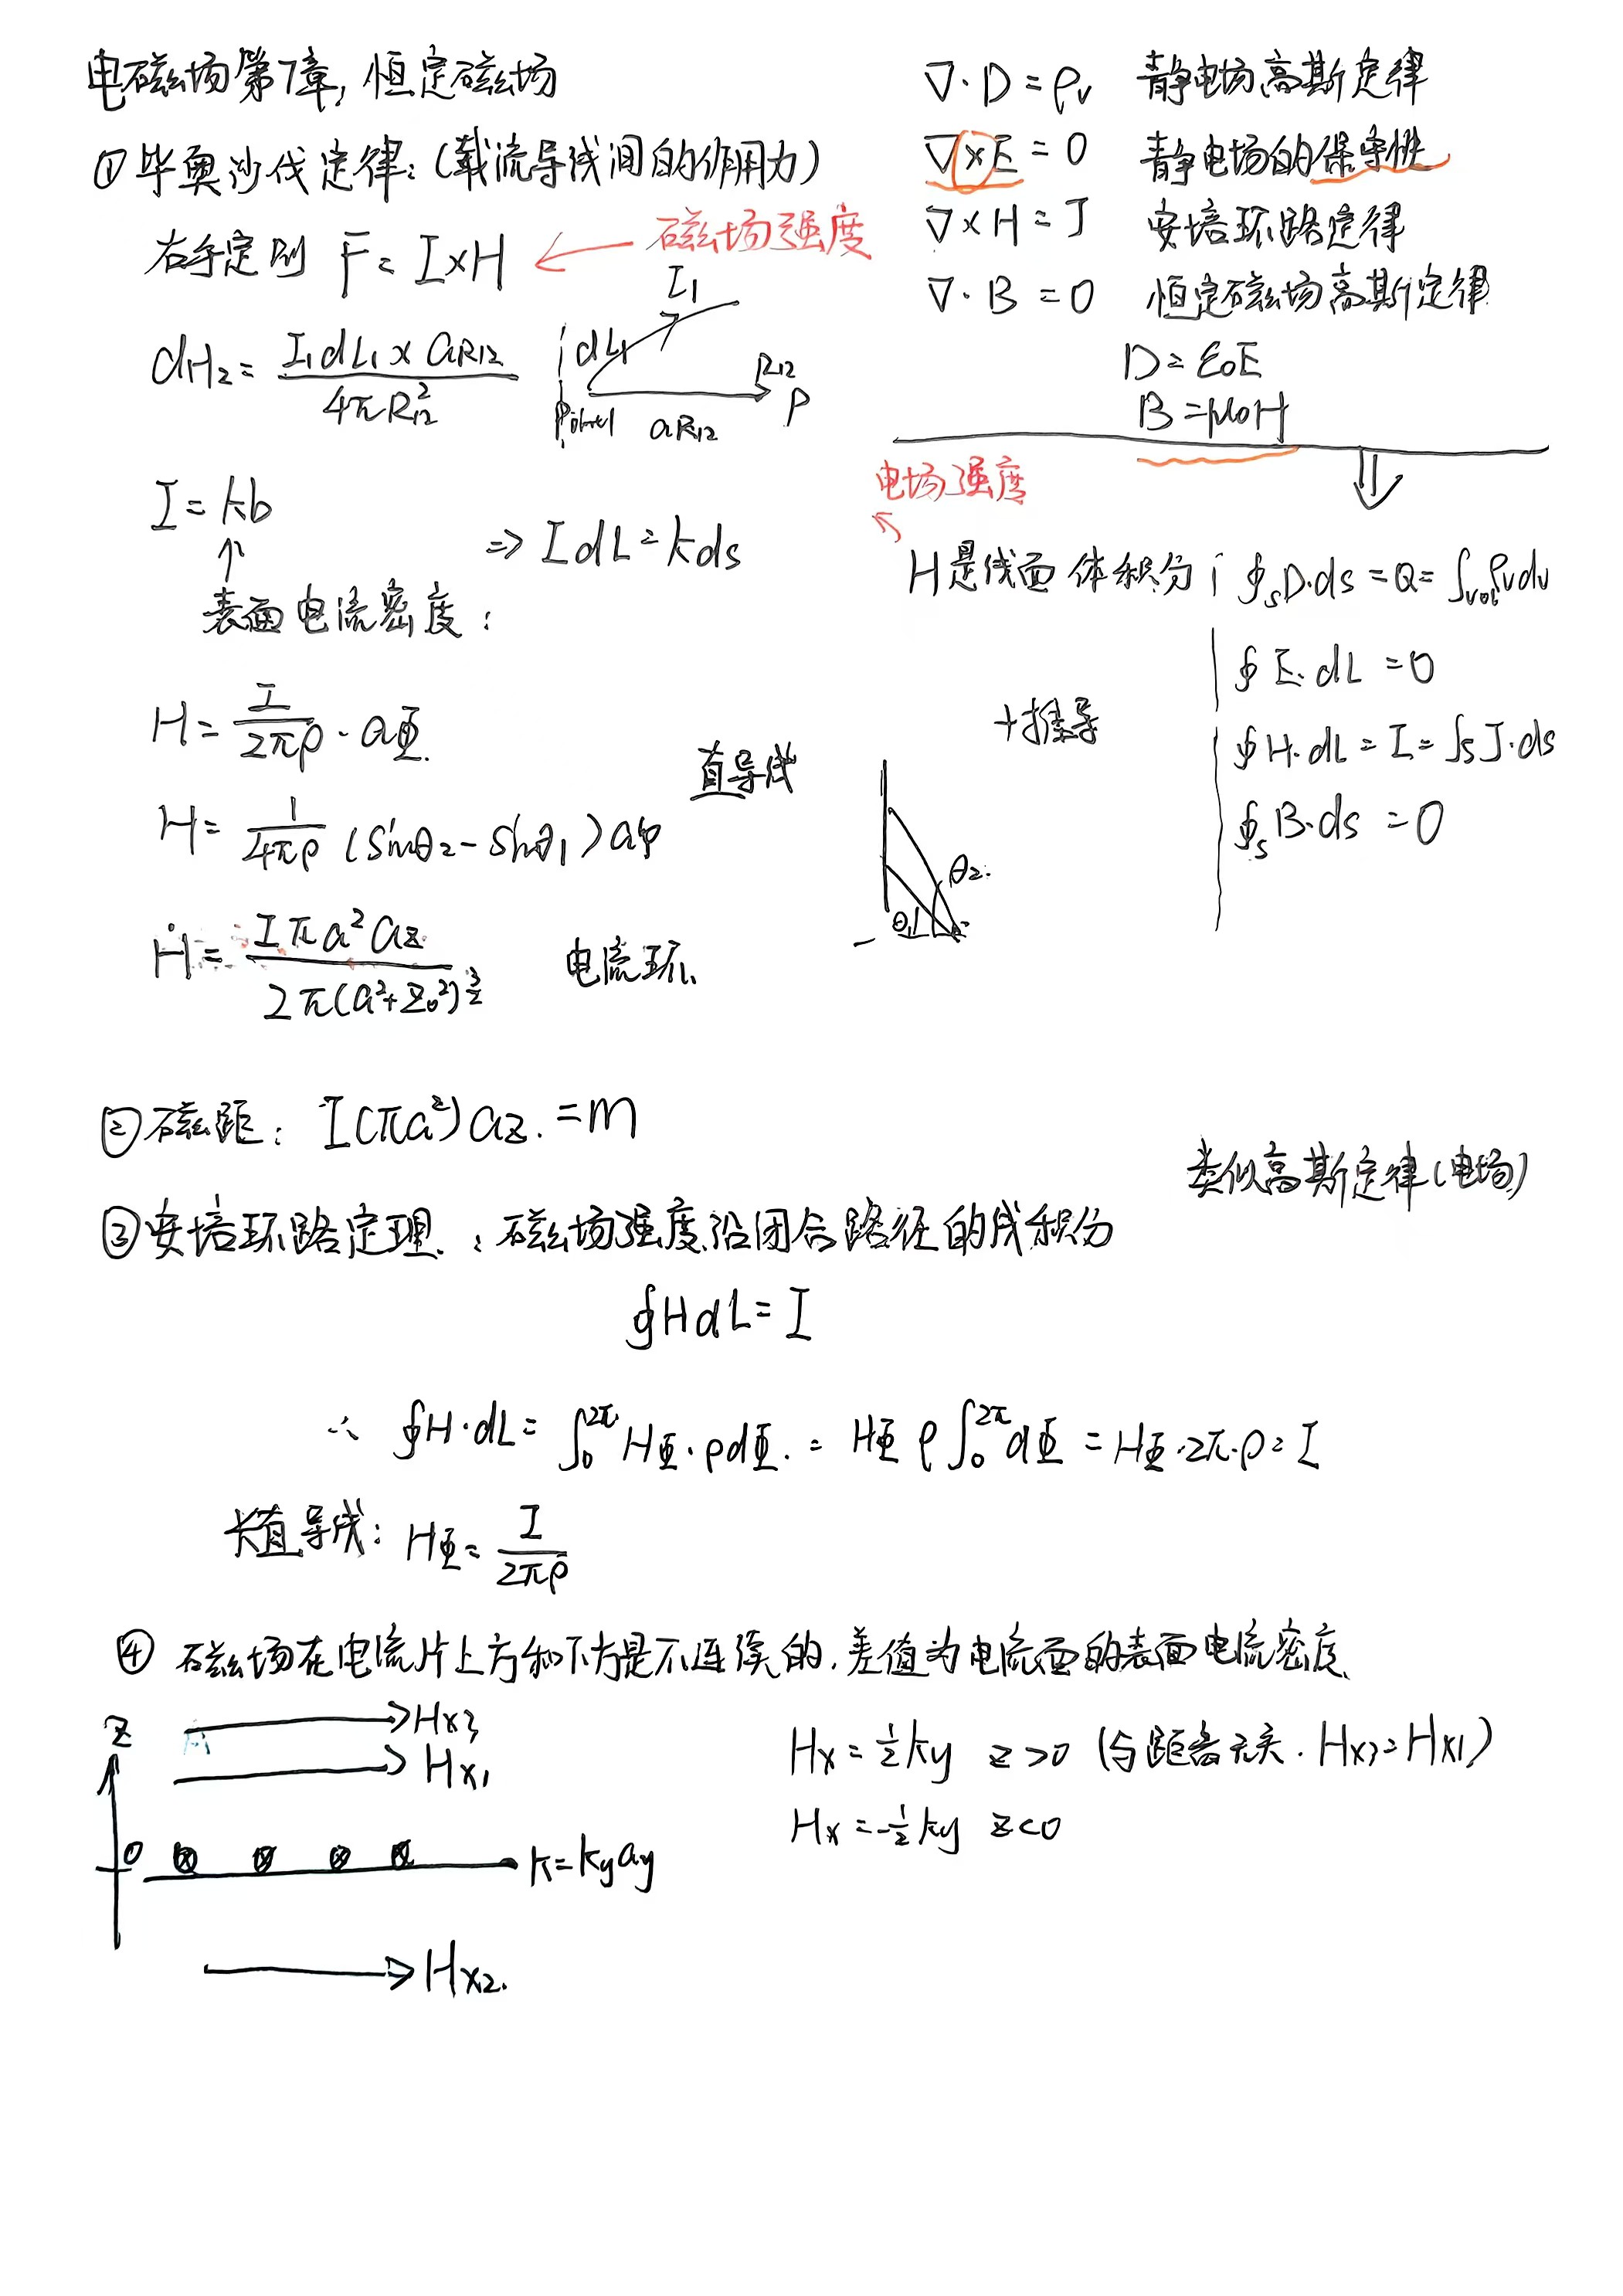 电磁场第7章,恒定磁场
①毕奥沙伐定律:(载流导线间的作用力)
右手定则 F = I×H ← 磁场强度
dH₂ = I₁dL₁×aR₁₂ / 4πR₁₂²
I₁
dL₁
R₁₂
P
aR₁₂
I = kb
⇒ IdL = kds
↑
表面电流密度:
H = I/2πρ · aΦ
直导线
H = 1/4πρ (Sinθ₂ - Sinθ₁) aφ
H = Iπa²az / 2π(a²+z₀²)^(3/2)
电流环
θ₂
θ₁
∇·D = ρv 静电场高斯定律
∇×E = 0 静电场的保守性
∇×H = J 安培环路定律
∇·B = 0 恒定磁场高斯定律
D = ε₀E
B = μ₀H
⇓
电场强度
H是线面体积分
∮s D·ds = Q = ∫vol ρv dv
∮ E·dL = 0
+推导
∮ H·dL = I = ∫s J·ds
∮s B·ds = 0
②磁距: I(πa²)az = m
类似高斯定律(电场)
③安培环路定理:磁场强度沿闭合路径的线积分
∮HdL = I
∴ ∮H·dL = ∫₀^2π HΦ·ρdΦ = HΦ ρ∫₀^2π dΦ = HΦ·2π·ρ = I
长直导线: HΦ = I/2πρ
④ 磁场在电流片上方和下方是不连续的,差值为电流面的表面电流密度
z
Hx3
Hx1
0
k = kyay
Hx2.
Hx = ½ky z>0 (与距离无关. Hx3=Hx1)
Hx = -½ky z<0